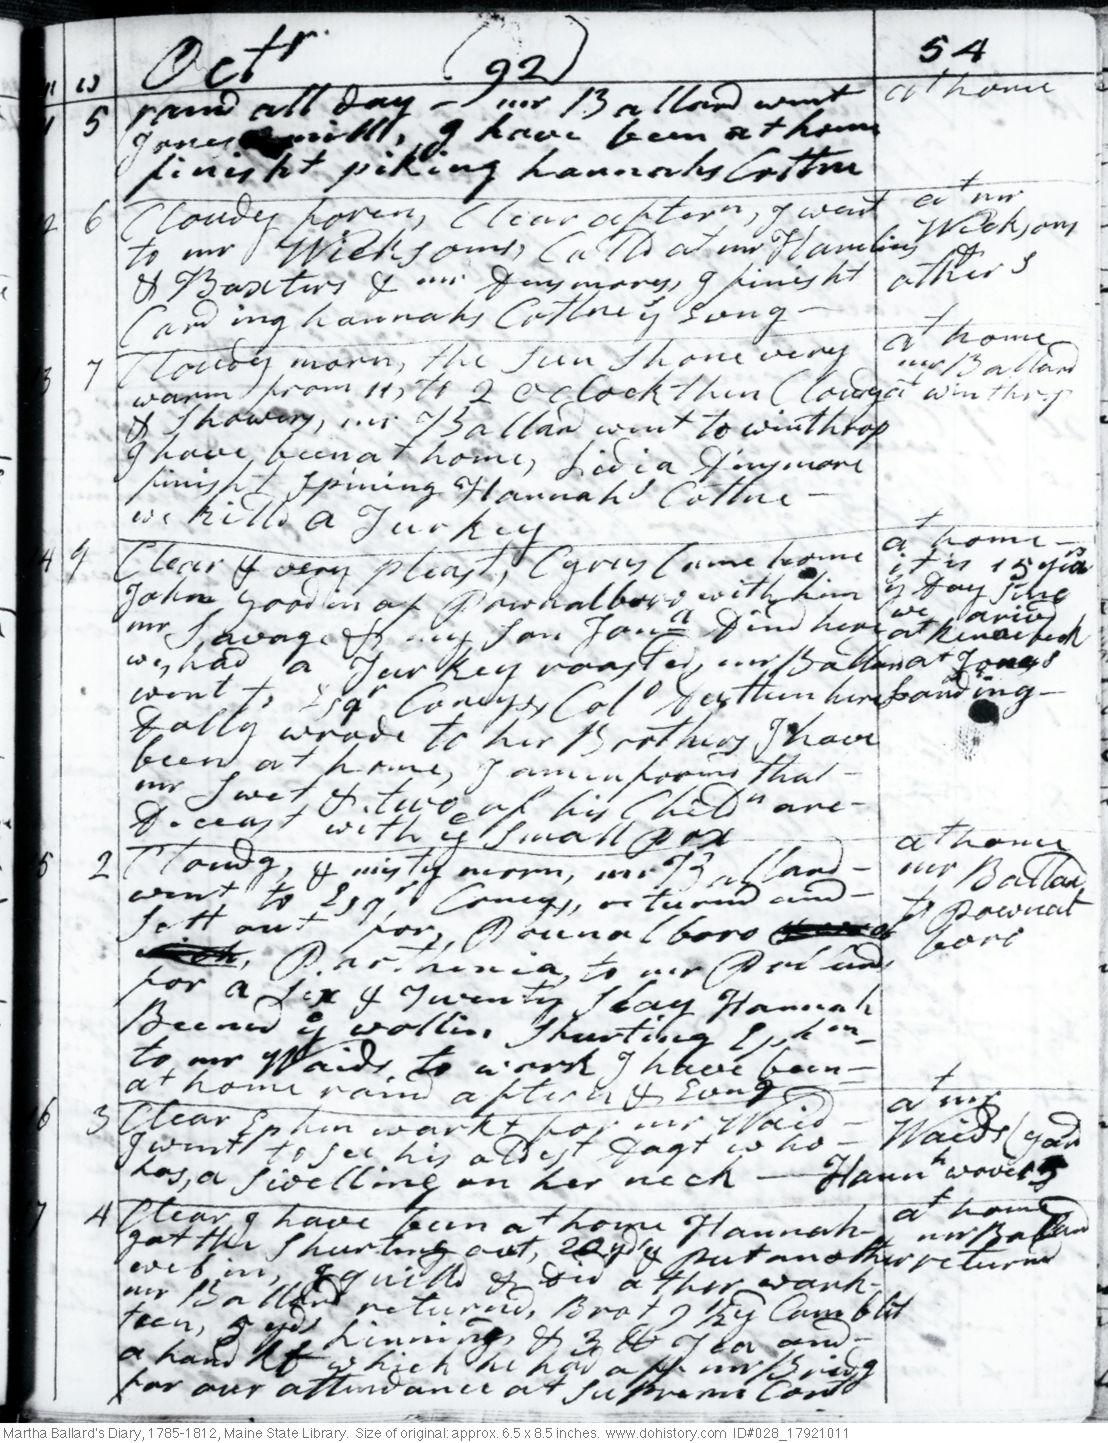 Octr (92) 54
11 5 raind all Day – mr Ballard went at home
Jones mill, I have been at home
finisht piking hannahs Cottne
12 6 Cloudy foren, Clear aftern, I went at mr
to mr Wicksoms, Calld at mr Hamlins Wicksoms
& Baxters & mr Densmores, I finisht others
Carding hannahs Cottne ys Evng –
13 7 Cloudy morn, the Sun Shone very at home
warm from 11, to 2 oClock then Cloudy mr Ballard
& Showery, mr Ballard went to winthrop at winthrop
I have been at home, Lidia Dinsmore
finisht Spining Hannahs Cottne –
we killd a Turkey
14 g Clear & very pleast, Cyrus Came home at home –
John Gooding of Pownalboro with him it is 15 yrs
mr Savage & my Son Jona Dind here ys Day sinc
we had a Turkey roasted, mr Ballard we arivd
went to Esqr Conys, Col Sestten here at kenebeck
Dolly wrode to her Brothers I have at Jones
been at home, I am informd that – Landing –
mr Swet & two of his Childn are –
Deceast with ye Small pox
15 2 Cloudy, & misty morn, mr Ballard – at home
went to Esqr Conys, returnd and – mr Ballard
Sett out for, Pownalboro to pownal
Parthenia, to mr Pollards boro
for a Six & Twenty Slay Hannah
Beemd ye wollin Shurting Ephm –
to mr Waids to work I have been –
at home raind aftern & Evng
16 3 Clear Ephm workt for mr Waid – at mr
I went to see his oldest Dagt who – Waids
has, a Swelling on her neck – Hannh wove
17 4 Clear I have been at home Hannah at home
got the Shurting out, 20 yds put another mr Ballard
web in, I quilld & Did other work – returnd
mr Ballard returnd, Brot 7 ½ yd Camblit
teen, 5 yds linning, & 3 lb Tea and –
a hand kf which he had off mr Bridg
for our attendance at Supreme Cort
Martha Ballard's Diary, 1785-1812, Maine State Library. Size of original: approx. 6.5 x 8.5 inches. www.dohistory.com ID#028_17921011